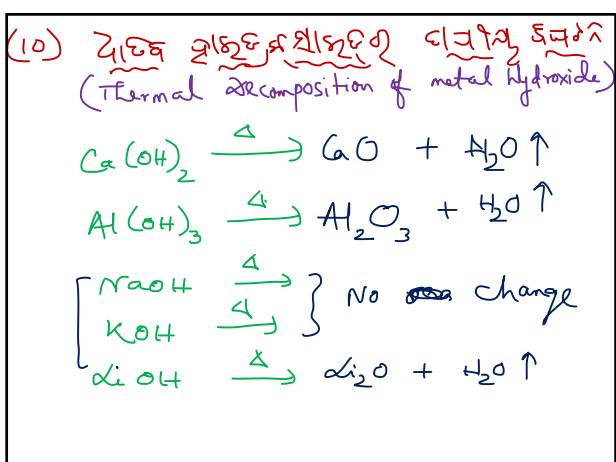 (10) ଧାତବ ହାଇଡ୍ରକ୍ସାଇଡ୍‌ର ତାପୀୟ ବିଘଟନ
(Thermal Decomposition of metal hydroxide)
Ca(OH)₂ —Δ→ CaO + H₂O ↑
Al(OH)₃ —Δ→ Al₂O₃ + H₂O ↑
NaOH —Δ→
KOH —Δ→ } No change
LiOH —Δ→ Li₂O + H₂O ↑